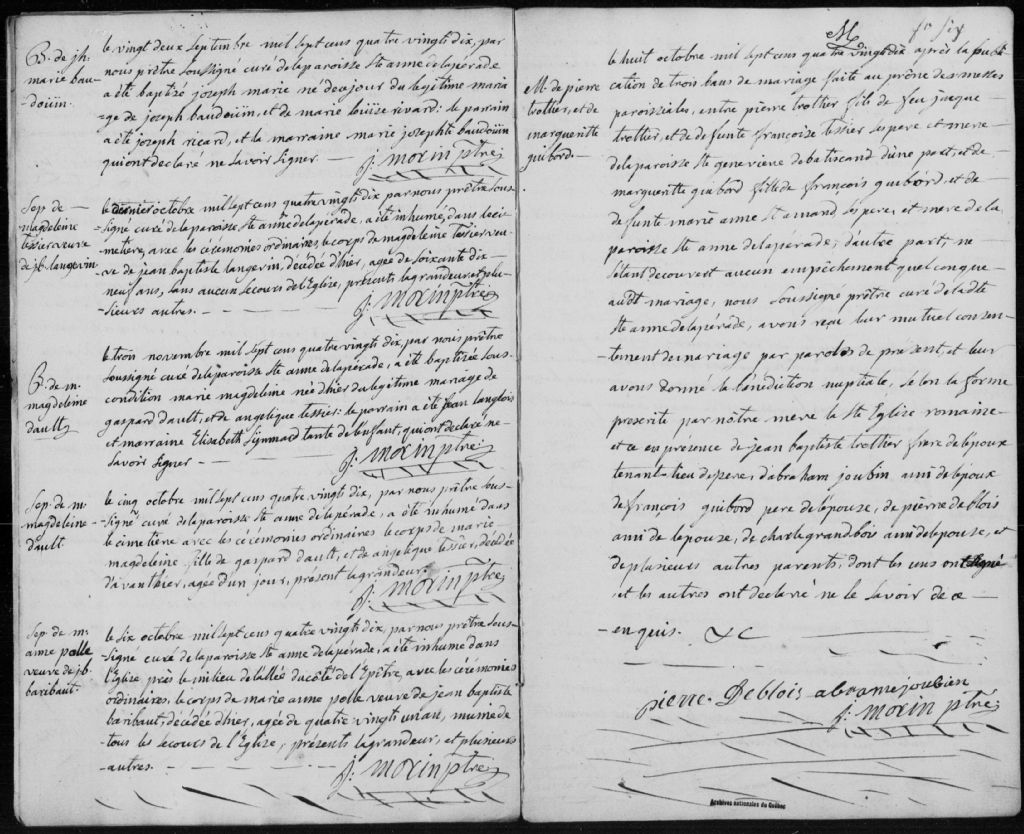 B. de jh.
marie bau-
-doüin.
le vingt deux septembre mil sept cens quatre vingt dix, par
nous prêtre soussigné curé de la paroisse ste anne de la pérade
a été baptisé joseph marie né de ce jour du legitime maria
-ge de joseph baudoüin, et de marie loüise rivard: le parrain
a été joseph ricard, et la marraine marie josephte baudoüin
qui ont declaré ne savoir signer. —
j: morin ptre;
Sep. de —
magdeleine
tessier veuve
de jb. langevin
le dernier octobre mil sept cens quatre vingt dix par nous prêtre sous-
-signé curé de la paroisse ste anne de la pérade, a été inhumé, dans le ci-
-metiere, avec les cérémonies ordinaires, le corps de magdeleine tessier veu-
-ve de jean baptiste langevin, décédée d'hier, agée de soixante dix-
neuf ans, sans aucun secours de l'Eglise, présents lagrandeur et plu-
-sieurs autres. —
j: morin ptre;
B. de m.
magdeleine
dault
le trois novembre mil sept cens quatre vingt dix, par nous prêtre
soussigné curé de la paroisse ste anne de la pérade, a été baptisée sous-
condition marie magdeleine née d'hier du legitime mariage de
gaspard dault, et de angelique tessier: le parrain a été jean langlois
et marraine Elisabeth tante de l'enfant, qui ont declaré ne-
savoir signer —
j: morin ptre:
Sep. de m.
magdeleine
dault
le cinq octobre mil sept cens quatre vingt dix, par nous prêtre sous-
-signé curé de la paroisse ste anne de la pérade, a été inhumé dans
le cimetière avec les cérémonies ordinaires le corps de marie
magdeleine fille de gaspard dault, et de angelique tessier, décédée
d'avanthier, agée d'un jour, présent lagrandeur.
j: morin ptre;
Sep. de m:
anne polle
veuve de jb.
baribaut.
le six octobre mil sept cens quatre vingt dix, par nous prêtre sous-
-signé curé de la paroisse ste anne de la pérade, a été inhumé dans
l'Eglise près le milieu de l'allée du côté de l'Epître, avec les cérémonies
ordinaires, le corps de marie anne polle veuve de jean baptiste
baribaut, décédée d'hier, agée de quatre vingt un an, munie de
tous les secours de l'Eglise, présents lagrandeur, et plusieurs
-autres. —
j: morin ptre;
M
fo six
M. de pierre
trotter, et de
margueritte
guibord.
le huit octobre mil sept cens quatre vingt dix après la publi
cation de trois bans de mariage faite au prône des messes
paroissiales, entre pierre trotter fils de feu jacque
trotter, et de defunte françoise tessier ses pere et mere
de la paroisse ste genevieve de batiscand d'une part, et de
margueritte guibord fille de françois guibord, et de
defunte marie anne st amand, ses pere, et mere de la
paroisse ste anne de la pérade; d'autre part, ne
s'étant decouvert aucun empêchement quelconque
audt mariage, nous soussigné prêtre curé de ladte
ste anne de la pérade, avons reçu leur mutuel consen-
-tement du mariage par paroles de présent, et leur
avons donné la bénédiction nuptiale, selon la forme
prescrite par nôtre mere la ste Eglise romaine-
et ce en présence de jean baptiste trotter frere de l'époux
tenant lieu de pere, d'abraham joubin ami de l'époux
de françois guibord pere de l'épouse, de pierre deblois
ami de l'epouse, de charle grandbois ami de l'epouse, et
de plusieurs autres parents, dont les uns ont signé
et les autres ont déclaré ne le savoir de ce —
-enquis. &C
pierre. Deblois abrame joubien
j: morin ptre;
Archives nationales du Québec